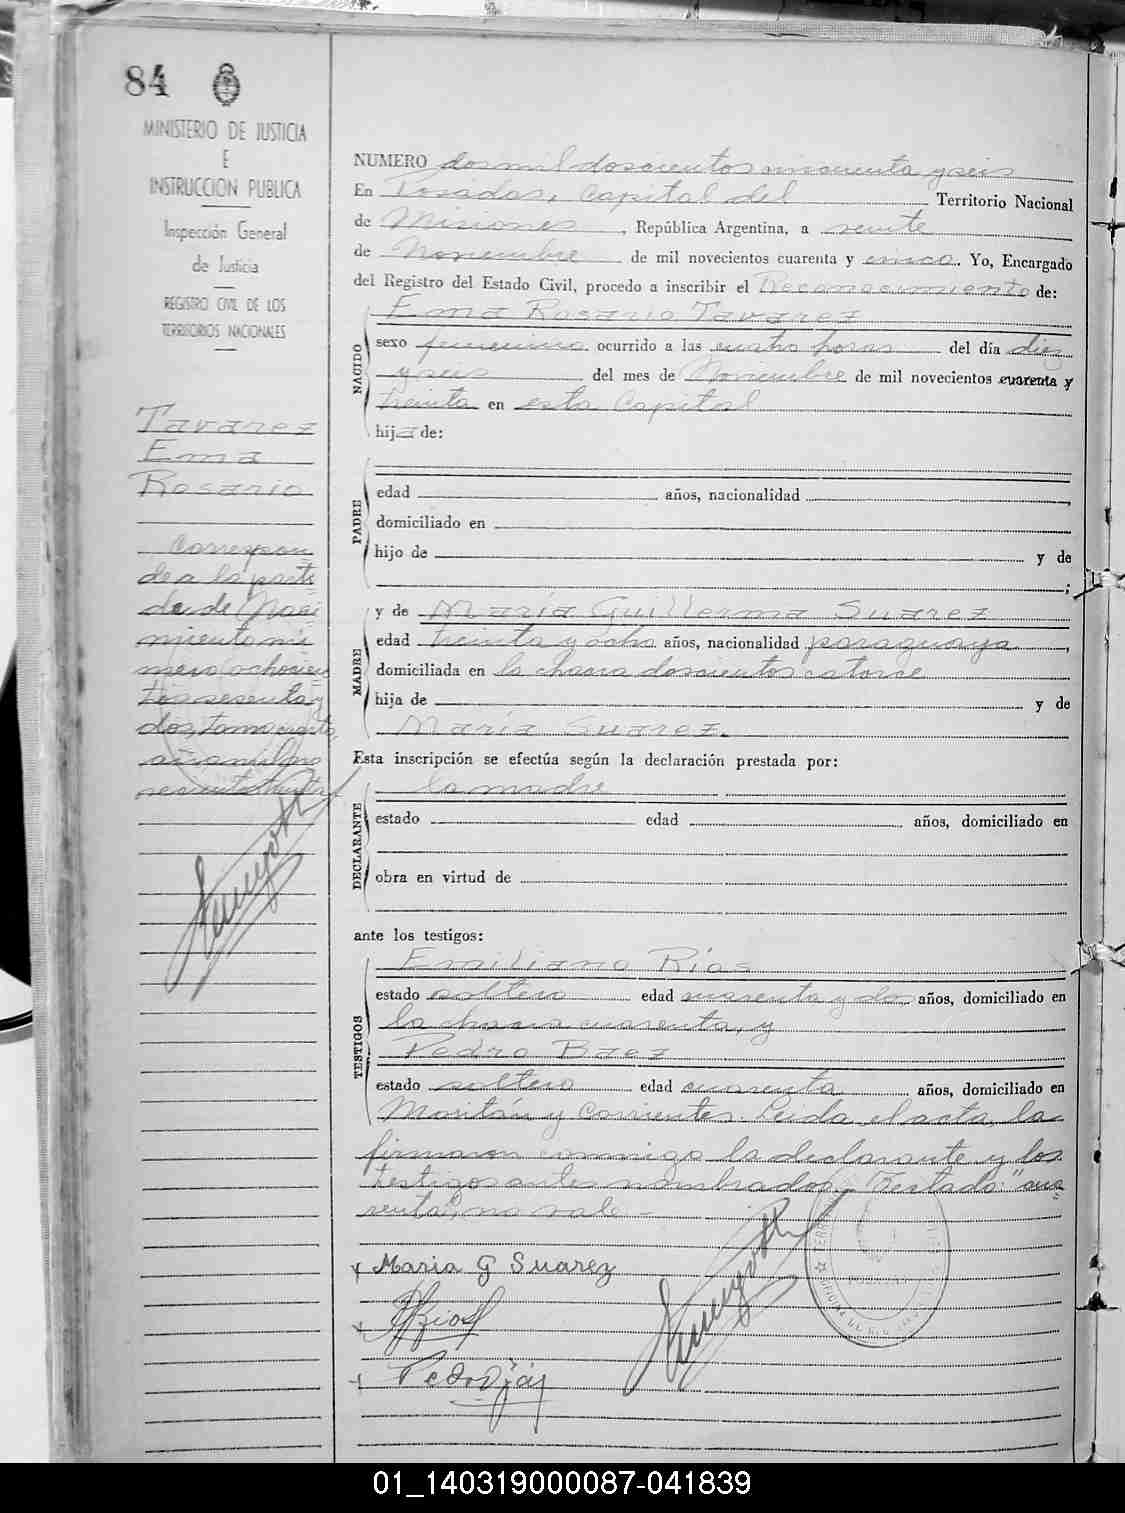 84
MINISTERIO DE JUSTICIA
E
INSTRUCCION PUBLICA
Inspección General
de Justicia
REGISTRO CIVIL DE LOS
TERRITORIOS NACIONALES
Tavarez
Ema
Rosario
Correspon
de a la parti
da de Naci
miento nú
mero ochocien
tos sesenta y
dos, tomo cuarto,
año mil no
vecientos treinta
NUMERO dos mil doscientos cincuenta y seis
En Posadas, Capital del Territorio Nacional
de Misiones, República Argentina, a veinte
de Noviembre de mil novecientos cuarenta y cinco. Yo, Encargado
del Registro del Estado Civil, procedo a inscribir el Reconocimiento de:
Ema Rosario Tavarez
NACIDO
sexo femenino ocurrido a las cuatro horas del día diez
y seis del mes de Noviembre de mil novecientos cuarenta y
treinta en esta Capital
hija de:
PADRE
edad años, nacionalidad ,
domiciliado en
hijo de y de
;
MADRE
y de María Guillerma Suarez
edad treinta y ocho años, nacionalidad paraguaya,
domiciliada en la chacra doscientos catorce
hija de y de
María Suarez.
Esta inscripción se efectúa según la declaración prestada por:
la madre
DECLARANTE
estado edad años, domiciliado en
obra en virtud de
ante los testigos:
TESTIGOS
Emiliano Ríos
estado soltero edad cuarenta y dos años, domiciliado en
la chacra cuarenta, y
Pedro Baez
estado soltero edad cuarenta años, domiciliado en
y Corrientes. Leída el acta, la
firmaron conmigo la declarante y los
testigos antes nombrados. Testado: "cua
renta", no vale.-
x Maria G Suarez
01_140319000087-041839